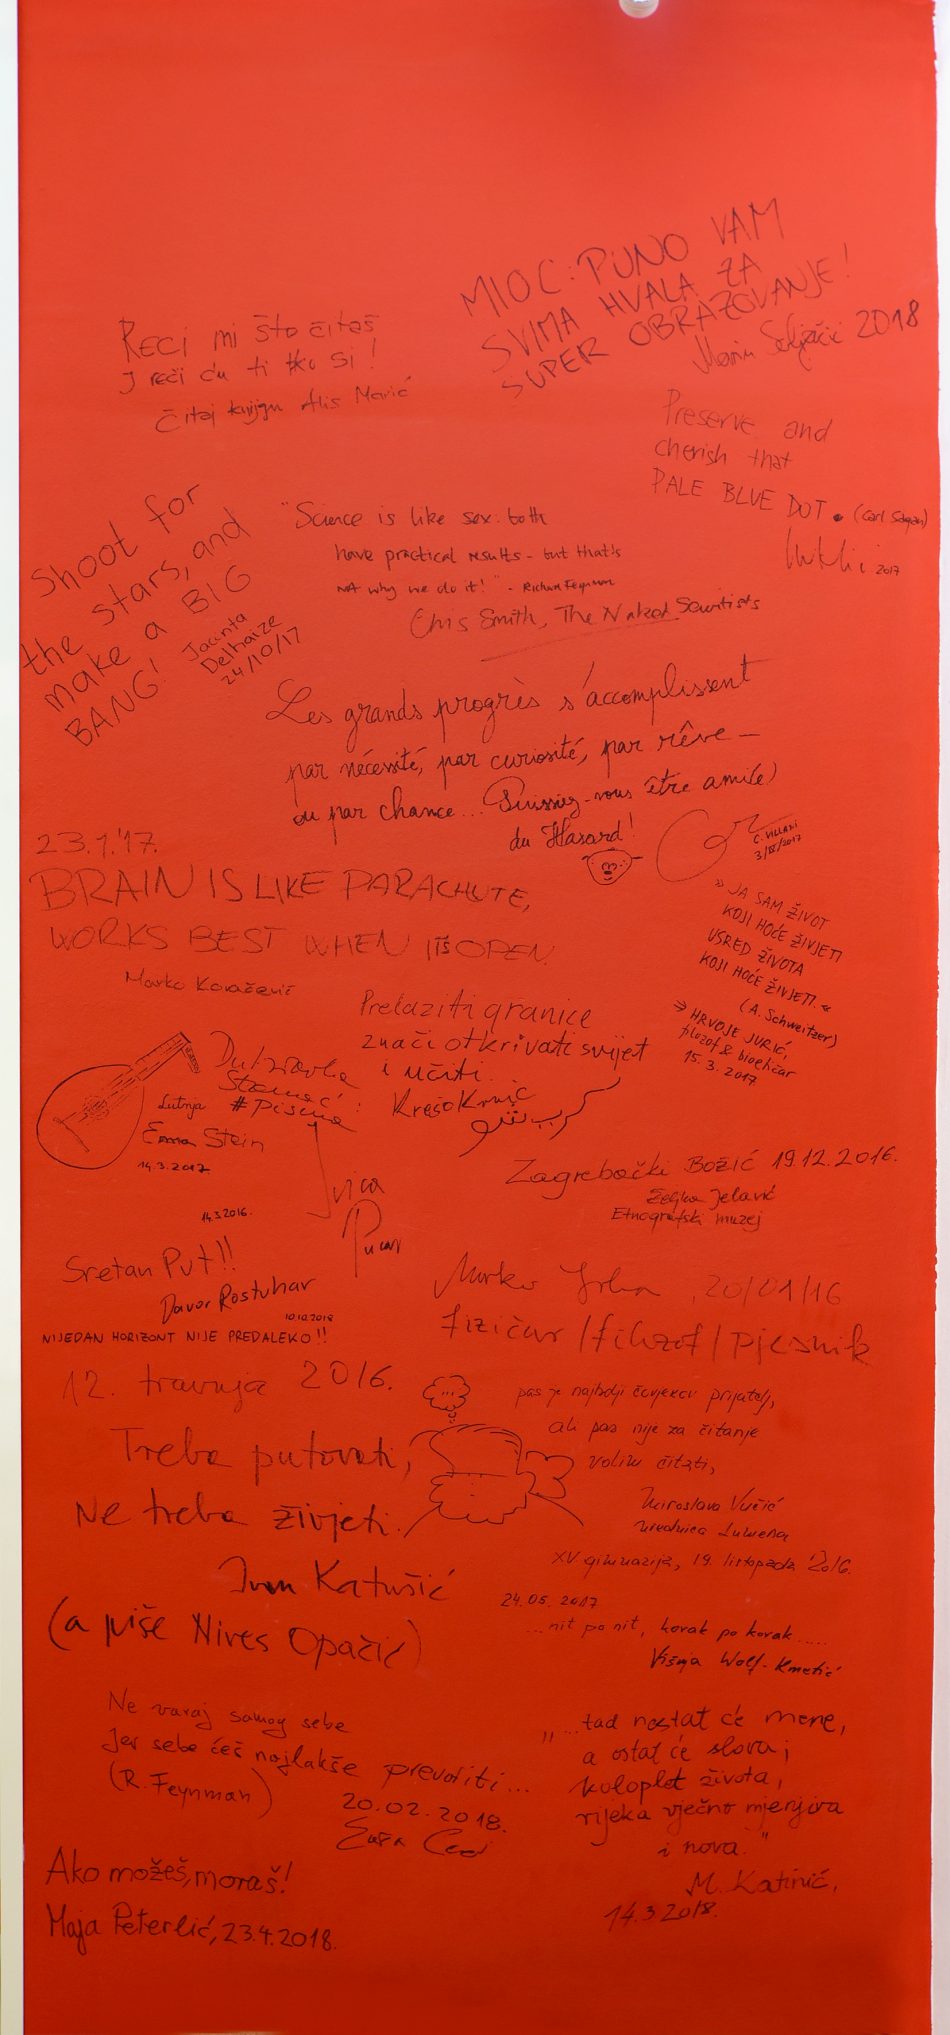 MIOC: PUNO VAM
SVIMA HVALA ZA
SUPER OBRAZOVANJE!
Marin Soljačić 2018
RECI mi što čitaš
I reći ću ti tko si!
Čitaj knjigu Alis Marić
Preserve and
cherish that
PALE BLUE DOT. (Carl Sagan)
2017
Shoot for
the stars, and
make a BIG
BANG!
Jacinta
Delhaize
24/10/17
"Science is like sex: both
have practical results - but that's
not why we do it!" - Richard Feynman
Chris Smith, The Naked Scientists
Les grands progrès s'accomplissent
par nécessité, par curiosité, par rêve —
ou par chance... Puissiez-vous être ami(e)
du Hasard!
C. VILLANI
3/IV/2017
23.1.'17.
BRAIN IS LIKE PARACHUTE,
WORKS BEST WHEN ITS OPEN.
Marko Kovačević
» JA SAM ŽIVOT
KOJI HOĆE ŽIVJETI
USRED ŽIVOTA
KOJI HOĆE ŽIVJETI. «
(A. Schweitzer)
→ HRVOJE JURIĆ,
filozof & bioetičar
15.3.2017
Prelaziti granice
znači otkrivati svijet
i učiti.
Krešo Krnić
Dubravka
Stamać
# Pisma
Lutnja
Emma Stein
14.3.2017
Ivica
Pucar
14.3.2016.
Zagrebački Božić 19.12.2016.
Željka Jelavić
Etnografski muzej
Sretan Put!!
Davor Rostuhar
10.10.2018
NIJEDAN HORIZONT NIJE PREDALEKO!!
Marko 20/01/16
fizičar / filozof / pjesnik
12. travnja 2016.
Treba putovati,
Ne treba živjeti.
Ivan Katušić
(a piše Nives Opačić)
...
pas je najbolji čovjekov prijatelj,
ali pas nije za čitanje
volim čitati,
Miroslava Vučić
urednica Lumena
XV. gimnazija, 19. listopada 2016.
24.05.2017
...nit po nit, korak po korak.....
Višnja Wolf-Kmetić
Ne varaj samog sebe
Jer sebe ćeš najlakše prevariti...
(R. Feynman)
20.02.2018.
„...tad nestat će mene,
a ostat će slova;
koloplet života,
rijeka vječno mjenjiva
i nova."
M. Katinić,
14.3.2018.
Ako možeš, moraš!
Maja Peterlić, 23.4.2018.